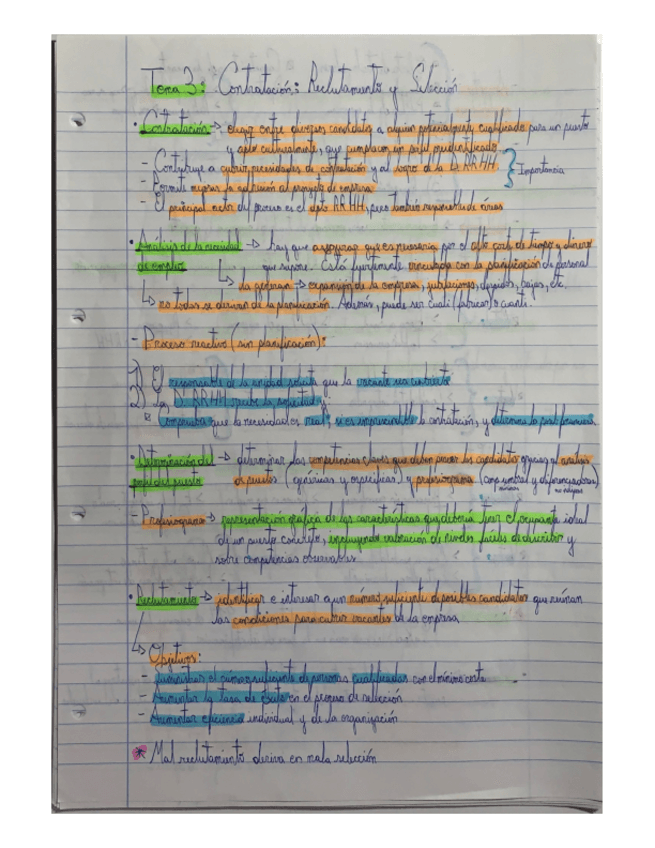 Tema 3: Contratación: Reclutamiento y Selección
• Contratación → elegir entre diversos candidatos a alguien potencialmente cualificado para un puesto
y apto culturalmente, que cumpla con un perfil predeterminado.
- Contribuye a cubrir necesidades de contratación y al logro de la D. RRHH
- Permite mejorar la adhesión al proyecto de empresa
Importancia
- El principal actor del proceso es el dpto RRHH, pero también responsable de áreas
• Análisis de la necesidad → hay que asegurar que es necesario por el alto coste de tiempo y dinero
de empleo que supone. Está fuertemente vinculada con la planificación de personal
↳ la generan → expansión de la empresa, jubilaciones, despidos, bajas, etc.
↳ no todas se derivan de la planificación. Además, puede ser cuali (fabricar) o cuanti.
- Proceso reactivo (sin planificación):
1) El responsable de la unidad solicita que la vacante sea cubierta
2) La D. RRHH recibe la solicitud y
comprueba que la necesidad es real, si es imprescindible la contratación, y determina la
• Determinación del → determinar las competencias claves que deben poseer los candidatos gracias al análisis
perfil del puesto de puestos (genéricas y específicas) y profesiograma (comp umbral y diferenciadoras)
- Profesiograma → representación gráfica de las características que debería tener el ocupante ideal
de un puesto concreto, incluyendo valoración de niveles fáciles de describir y
sobre competencias observables
• Reclutamiento → identificar e interesar a un número suficiente de posibles candidatos que reúnan
las condiciones para cubrir vacantes de la empresa
↳ Objetivos:
- Suministrar el número suficiente de personas cualificadas con el mínimo coste
- Aumentar la tasa de éxito en el proceso de selección
- Aumentar eficiencia individual y de la organización
* Mal reclutamiento deriva en mala selección